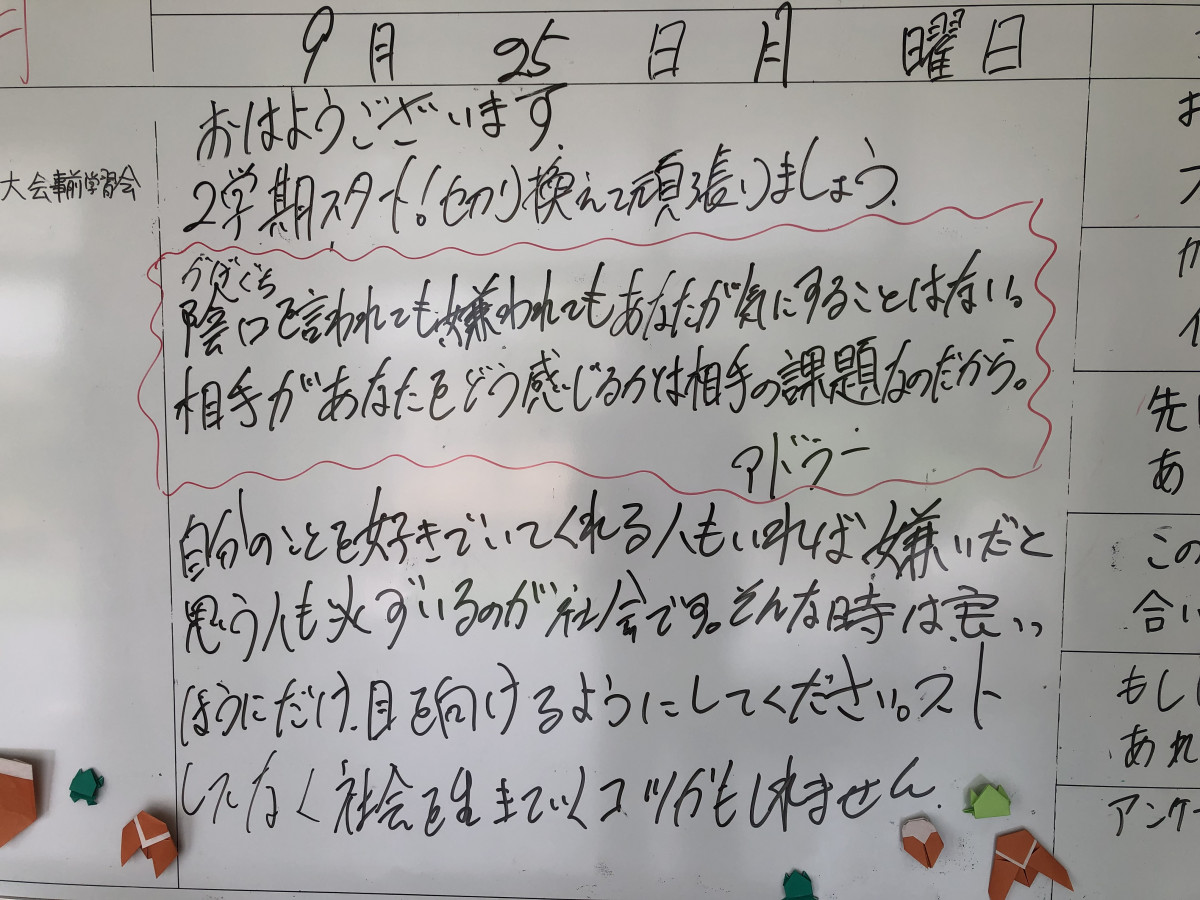 9月 25 日 月 曜日
大会事前学習会
おはようございます.
2学期スタート!切り換えて頑張りましょう.
かげぐち
陰口を言われても嫌われてもあなたが気にすることはない。
相手があなたをどう感じるかは相手の課題なのだから。
アドラー
自分のことを好きでいてくれる人もいれば嫌いだと
思う人も必ずいるのが社会です。そんな時は良い
ほうにだけ.目を向けるようにしてください。スト
してなく社会を生きていくコツかもしれません.
先
あ
この
合い
もし
あれ
アンケー